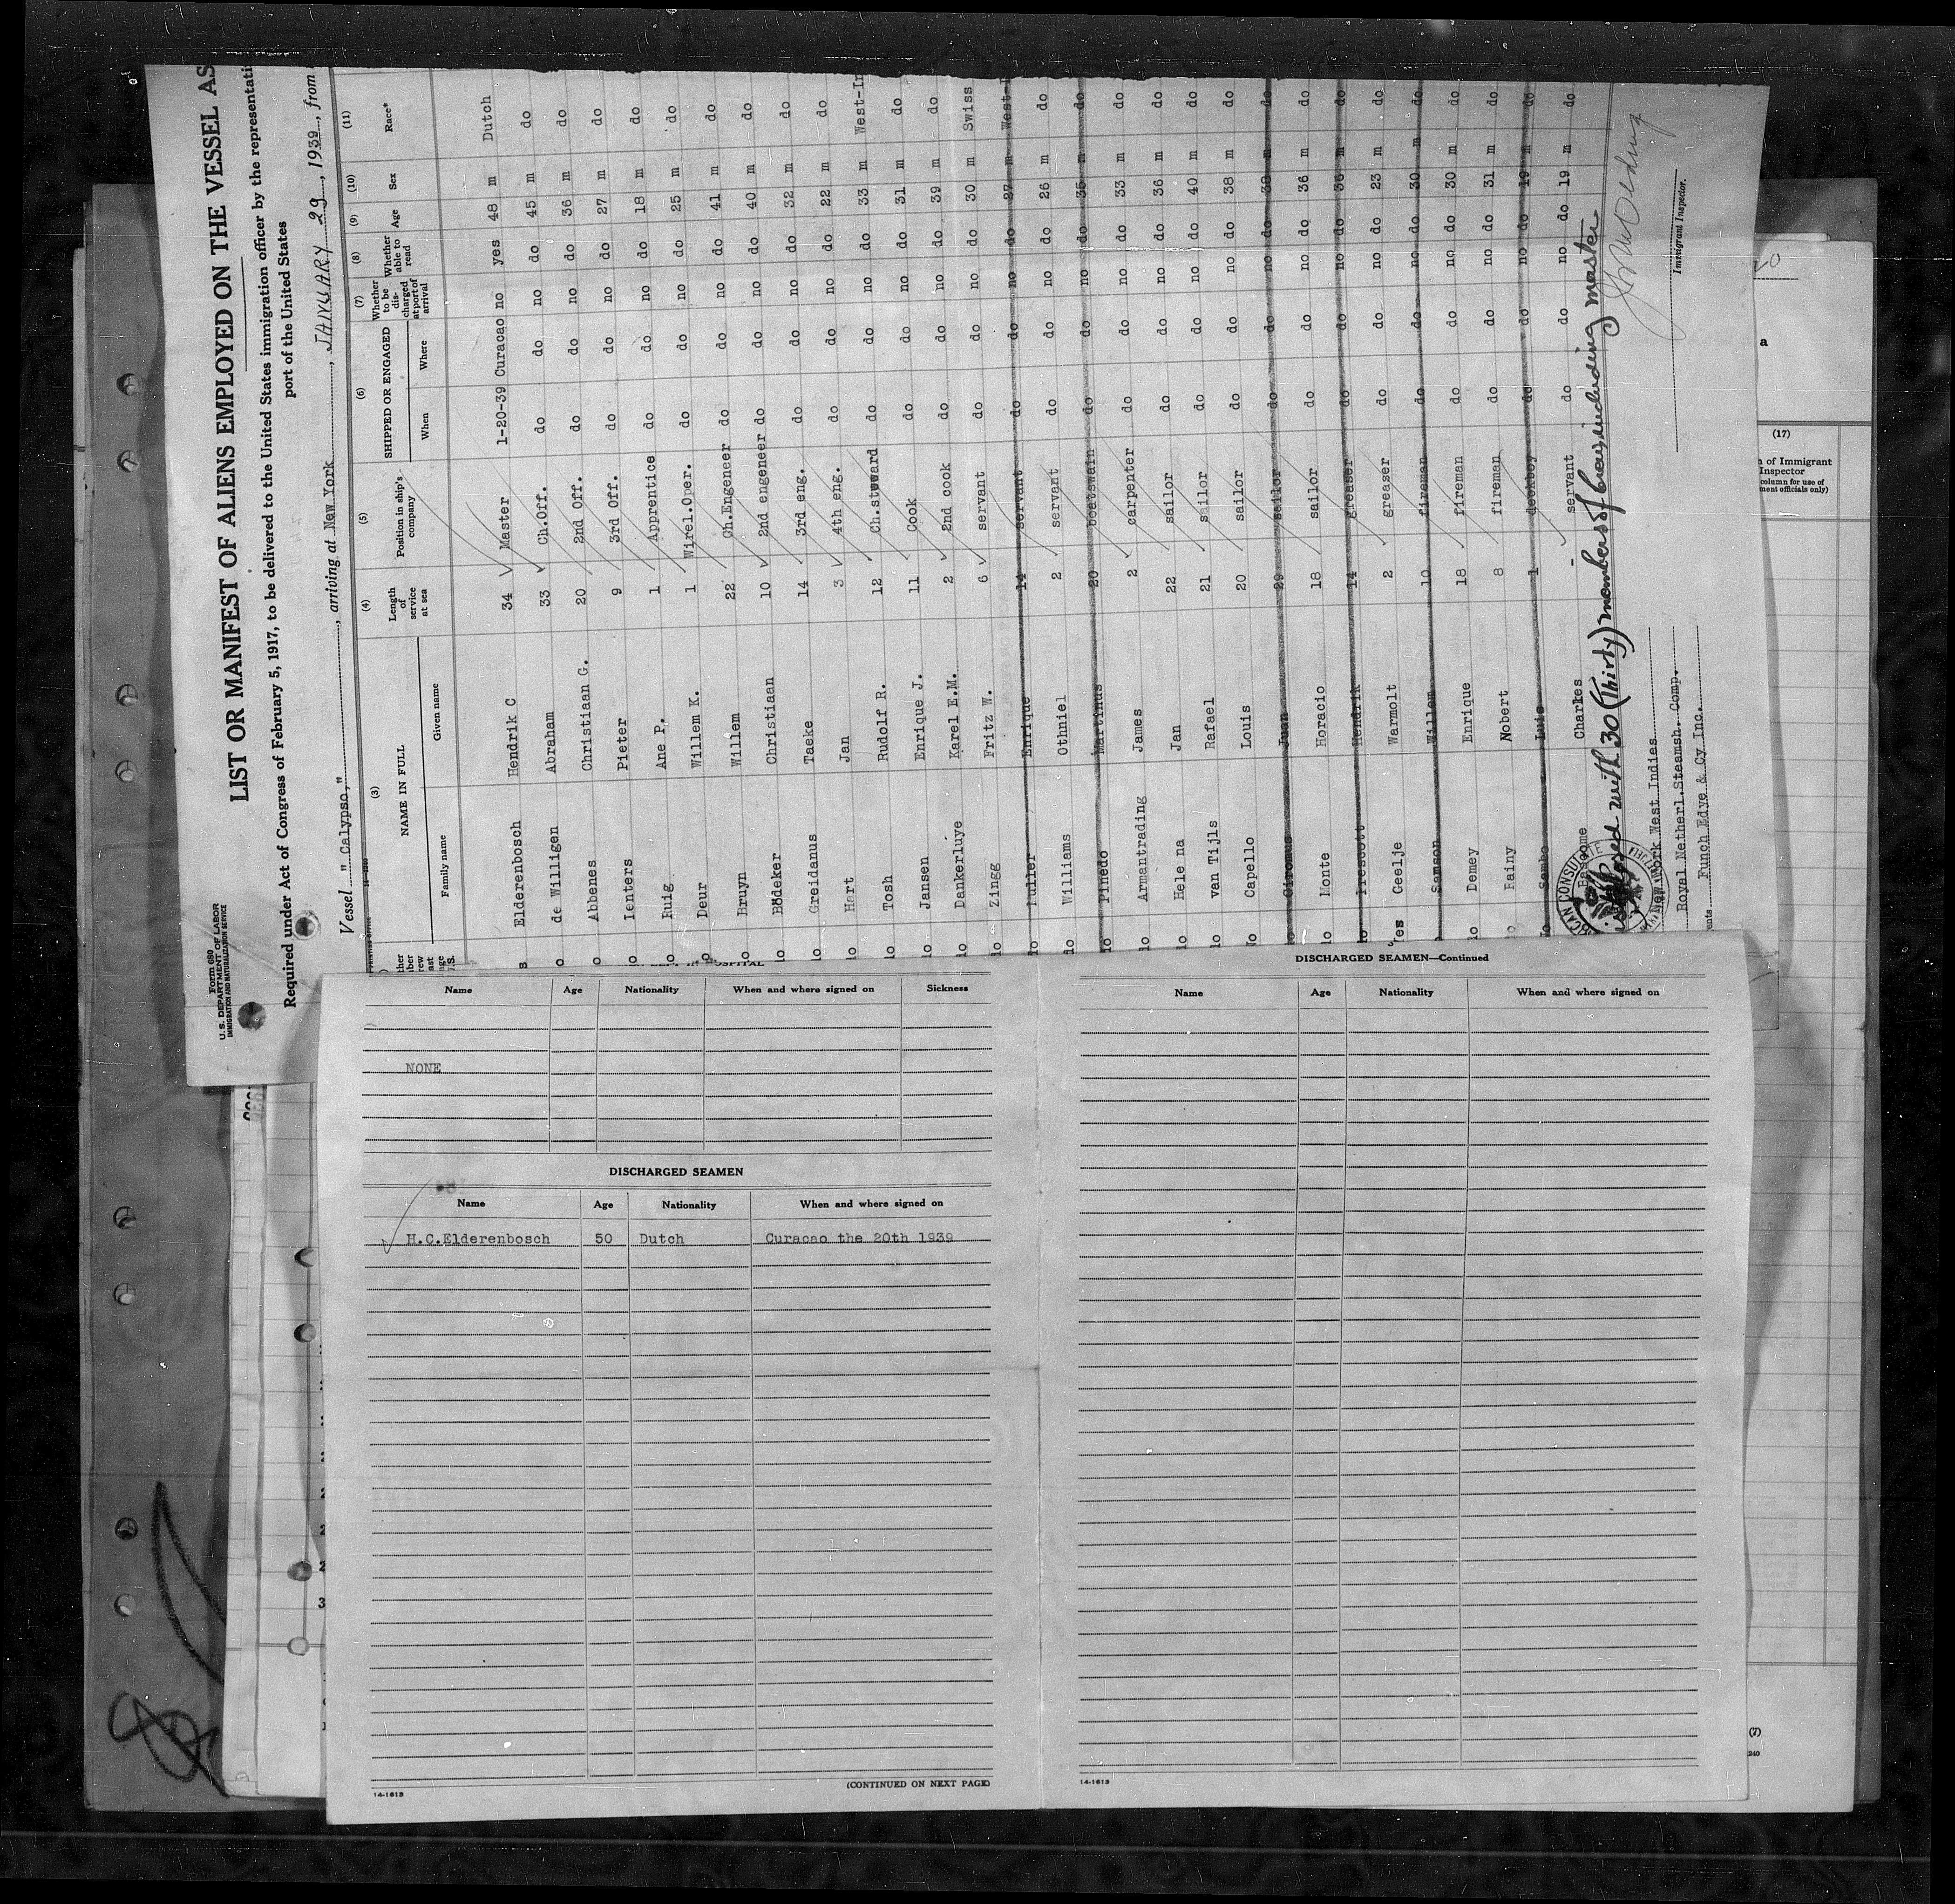 Form 680
U.S. DEPARTMENT OF LABOR
IMMIGRATION AND NATURALIZATION SERVICE
LIST OR MANIFEST OF ALIENS EMPLOYED ON THE VESSEL AS
Required under Act of Congress of February 5, 1917, to be delivered to the United States immigration officer by the representati
port of the United States
Vessel " Calypso,", arriving at New York, JANUARY 29, 1939, from
(3) (4) (5) (6) (7) (8) (9) (10) (11)
NAME IN FULL Length of service at sea Position in ship's company SHIPPED OR ENGAGED Whether to be discharged at port of arrival Whether able to read Age Sex Race*
Family name Given name When Where
Elderenbosch Hendrik C 34 Master 1-20-39 Curacao no yes 48 m Dutch
de Willigen Abraham 33 Ch.Off. do do no do 45 m do
Abbenes Christiaan G. 20 2nd Off. do do no do 36 m do
Ienters Pieter 9 3rd Off. do do no do 27 m do
Ruig Ane P. 1 Apprentice do do no do 18 m do
Deur Willem K. 1 Wirel.Oper. do do no do 25 m do
Bruyn Willem 22 Ch.Engeneer do do no do 41 m do
Bödeker Christiaan 10 2nd engeneer do do no do 40 m do
Greidanus Taeke 14 3rd eng. do do no do 32 m do
Hart Jan 3 4th eng. do do no do 22 m do
Tosh Rudolf R. 12 Ch.steward do do no do 33 m West-In
Jansen Enrique J. 11 Cook do do no do 31 m do
Dankerluye Karel E.M. 2 2nd cook do do no do 39 m do
Zingg Fritz W. 6 servant do do no do 30 m Swiss
Muller Enrique 14 servant do do no do 27 m West-I
Williams Othniel 2 servant do do no do 26 m do
Pinedo Martinus 20 boatswain do do no do 35 m do
Armantrading James 2 carpenter do do no do 33 m do
Hele na Jan 22 sailor do do no do 36 m do
van Tijls Rafael 21 sailor do do no do 40 m do
Capello Louis 20 sailor do do no do 38 m do
Juan 29 sailor do do no do 30 m do
Monte Horacio 18 sailor do do no do 36 m do
Prescott Hendrik 14 greaser do do no do 36 m do
Yes Ceelje Warmolt 2 greaser do do no do 23 m do
Samson Willem 10 fireman do do no do 30 m do
Demey Enrique 18 fireman do do no do 30 m do
Rainy Nobert 8 fireman do do no do 31 m do
Sambo Luis 1 deckboy do do no do 19 m do
Charkes - servant do do no do 19 m do
with 30 (Thirty) members of crew including master
New York West Indies
Royal Netherl.Steamsh. Comp.
Funch Edye & Cy Inc.
Immigrant Inspector.
(17)
of Immigrant
Inspector
column for use of
ment officials only)
Name Age Nationality When and where signed on Sickness
NONE
DISCHARGED SEAMEN
Name Age Nationality When and where signed on
H.C.Elderenbosch 50 Dutch Curacao the 20th 1939
(CONTINUED ON NEXT PAGE)
14-1613
DISCHARGED SEAMEN—Continued
Name Age Nationality When and where signed on
14-1613